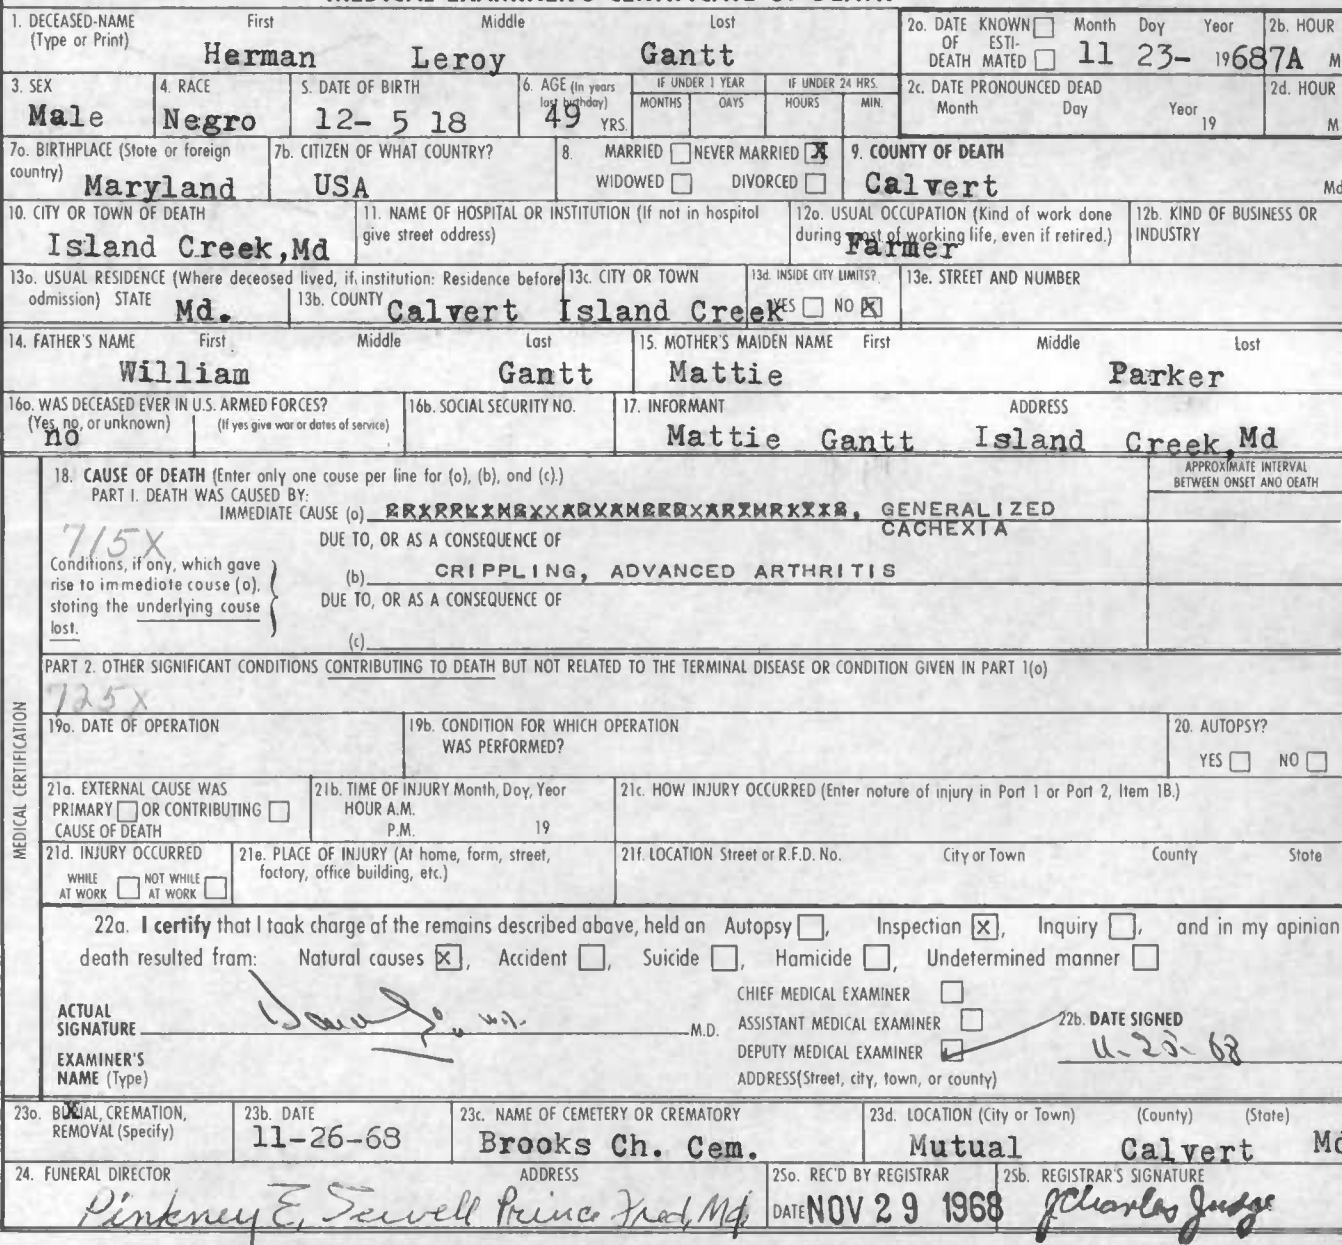 1. DECEASED-NAME First Middle Lost
(Type or Print)
Herman Leroy Gantt
2o. DATE KNOWN Month Doy Year
OF ESTI-
DEATH MATED 11 23- 1968
2b. HOUR
7A M
3. SEX
Male
4. RACE
Negro
5. DATE OF BIRTH
12- 5 18
6. AGE (in years
lost birthday)
49 YRS.
IF UNDER 1 YEAR
MONTHS DAYS
IF UNDER 24 HRS.
HOURS MIN.
2c. DATE PRONOUNCED DEAD
Month Day Year
19
2d. HOUR
M
7o. BIRTHPLACE (Stote or foreign
country) Maryland
7b. CITIZEN OF WHAT COUNTRY?
USA
8. MARRIED NEVER MARRIED X
WIDOWED DIVORCED
9. COUNTY OF DEATH
Calvert Md
10. CITY OR TOWN OF DEATH
Island Creek,Md
11. NAME OF HOSPITAL OR INSTITUTION (If not in hospitol
give street oddress)
12o. USUAL OCCUPATION (Kind of work done
during most of working life, even if retired.)
Farmer
12b. KIND OF BUSINESS OR
INDUSTRY
13o. USUAL RESIDENCE (Where deceosed lived, if institution: Residence before
odmission) STATE Md.
13b. COUNTY Calvert
13c. CITY OR TOWN
Island Creek
13d. INSIDE CITY LIMITS?
YES NO X
13e. STREET AND NUMBER
14. FATHER'S NAME First Middle Lost
William Gantt
15. MOTHER'S MAIDEN NAME First Middle Lost
Mattie Parker
16o. WAS DECEASED EVER IN U.S. ARMED FORCES?
(Yes, no, or unknown) (If yes give wor or dotes of service)
no
16b. SOCIAL SECURITY NO.
17. INFORMANT ADDRESS
Mattie Gantt Island Creek,Md
18. CAUSE OF DEATH (Enter only one couse per line for (o), (b), ond (c).)
APPROXIMATE INTERVAL
BETWEEN ONSET AND DEATH
PART I. DEATH WAS CAUSED BY:
IMMEDIATE CAUSE (o) GENERALIZED
CACHEXIA
715X
DUE TO, OR AS A CONSEQUENCE OF
Conditions, if ony, which gove
rise to immediote couse (o),
stoting the underlying couse
lost.
(b) CRIPPLING, ADVANCED ARTHRITIS
DUE TO, OR AS A CONSEQUENCE OF
(c)
PART 2. OTHER SIGNIFICANT CONDITIONS CONTRIBUTING TO DEATH BUT NOT RELATED TO THE TERMINAL DISEASE OR CONDITION GIVEN IN PART 1(o)
725X
MEDICAL CERTIFICATION
19o. DATE OF OPERATION
19b. CONDITION FOR WHICH OPERATION
WAS PERFORMED?
20. AUTOPSY?
YES NO
21a. EXTERNAL CAUSE WAS
PRIMARY OR CONTRIBUTING
CAUSE OF DEATH
21b. TIME OF INJURY Month, Doy, Yeor
HOUR A.M.
P.M. 19
21c. HOW INJURY OCCURRED (Enter noture of injury in Port 1 or Port 2, Item 1B.)
21d. INJURY OCCURRED
WHILE AT WORK NOT WHILE AT WORK
21e. PLACE OF INJURY (At home, form, street,
foctory, office building, etc.)
21f. LOCATION Street or R.F.D. No. City or Town County State
22a. I certify that I taak charge af the remains described abave, held an Autapsy , Inspectian X , Inquiry , and in my apinian
death resulted fram: Natural causes X , Accident , Suicide , Hamicide , Undetermined manner
ACTUAL
SIGNATURE M.D.
CHIEF MEDICAL EXAMINER
ASSISTANT MEDICAL EXAMINER
DEPUTY MEDICAL EXAMINER
22b. DATE SIGNED
EXAMINER'S
NAME (Type)
ADDRESS(Street, city, town, or county)
23o. BURIAL, CREMATION,
REMOVAL (Specify)
23b. DATE
11-26-68
23c. NAME OF CEMETERY OR CREMATORY
Brooks Ch. Cem.
23d. LOCATION (City or Town) (County) (State)
Mutual Calvert Md
24. FUNERAL DIRECTOR ADDRESS
Pinkney E. Sewell Prince Fred, Md.
25o. REC'D BY REGISTRAR
DATE NOV 29 1968
25b. REGISTRAR'S SIGNATURE
J Charles Judge